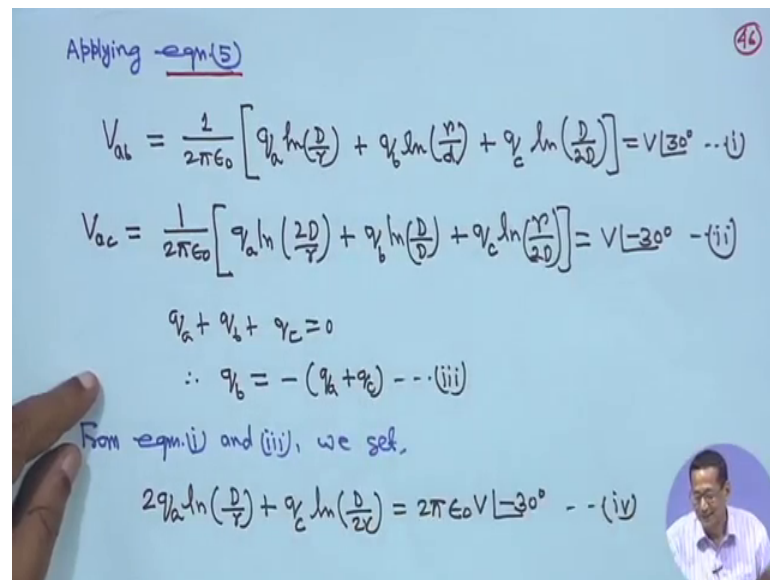 Applying eqn.(5)
46
V_ab = 1/2πϵ₀ [q_a ln(D/r) + q_b ln(r/d) + q_c ln(D/2D)] = V∠30° --(i)
V_ac = 1/2πϵ₀ [q_a ln(2D/r) + q_b ln(D/D) + q_c ln(r/2D)] = V∠-30° -(ii)
q_a + q_b + q_c = 0
∴ q_b = -(q_a + q_c) ---(iii)
From eqn.(i) and (iii), we get,
2q_a ln(D/r) + q_c ln(D/2r) = 2πϵ₀V∠-30° --(iv)